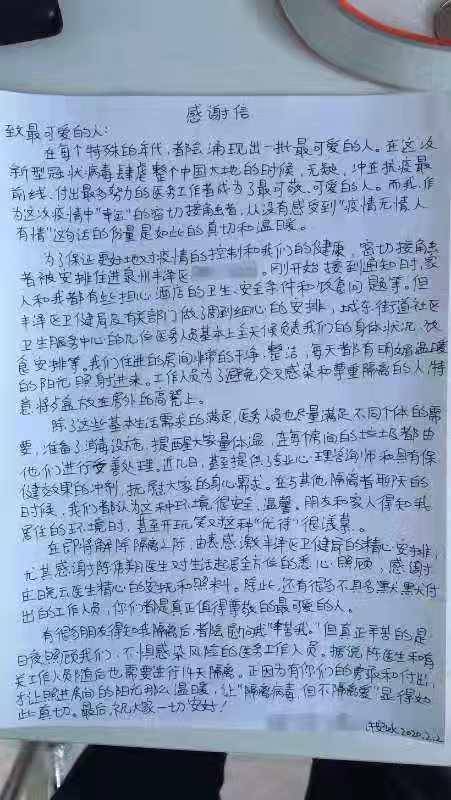 感谢信
致最可爱的人:
在每个特殊的年代,都会涌现出一批最可爱的人。在这次
新型冠状病毒肆虐整个中国大地的时候,无疑,冲在抗疫最
前线,付出最多努力的医务工作者成为了最可敬、可爱的人。而我,作
为这次疫情中“幸运”的密切接触者,从没有感受到“疫情无情人
有情”这句话的份量是如此的真切和温暖。
为了保证更好地对疫情的控制和我们的健康,密切接触者
者被安排住进泉州丰泽区。刚开始接到通知时,家
人和我都有些担心酒店的卫生、安全条件和饮食问题等。但
丰泽区卫健局及有关部门做了周到细心的安排,城东街道社区
卫生服务中心的几位医务人员基本上全天候负责我们的身体状况、饮
食安排等。我们住进的房间非常的干净、整洁,每天都有明媚温暖
的阳光照射进来。工作人员为了避免交叉感染和尊重隔离的人,特
意将餐放在房外的高凳上。
除了这些基本生活需求的满足,医务人员也尽量满足不同个体的需
要,准备了消毒设施,提醒大家量体温,连每个房间的垃圾都由
他们进行妥善处理。近几日,甚至提供了专业心理咨询师和具有保
健效果的冲剂,抚慰大家的身心需求。在与其他隔离者聊天的
时候,我们都认为这种环境很安全、温馨。朋友和家人得知我
居住的环境时,甚至开玩笑对这种“优待”很羡慕。
在即将解除隔离之际,由衷感激丰泽区卫健局的精心安排,
尤其感谢陈伟翔医生对生活起居全方位的悉心照顾,感谢
庄晓云医生精心的安抚和照料。除此,还有很多不具名默默付
出的工作人员,你们都是真正值得尊敬的最可爱的人。
有很多朋友得知我隔离后,都会慰问我“辛苦我。”但真正辛苦的是
日夜照顾我们,不惧感染风险的医务工作人员。据说,陈医生和有
关工作人员随后也需要进行14天隔离。正因为有你们的努力和付出,
才让照进房间的阳光那么温暖,让“隔离病毒,但不隔离爱”显得如
此真切。最后,祝大家一切安好!
2020.2.2